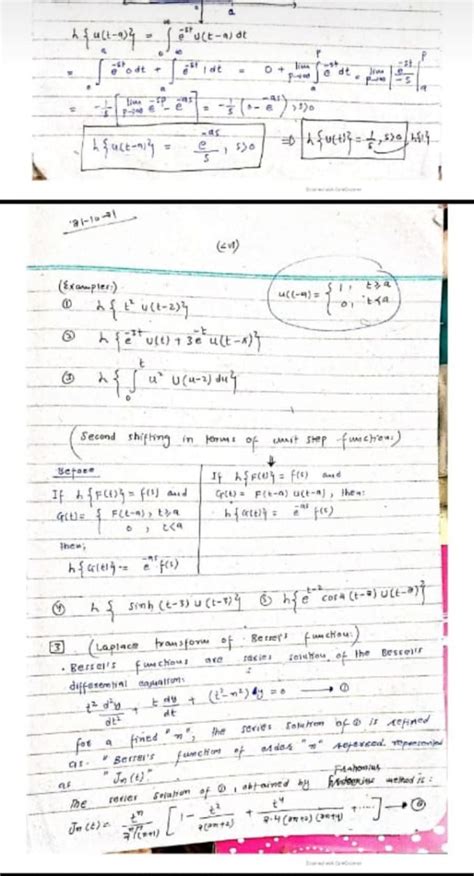 a
L{u(t-a)} = ∫₀^∞ e^{-st} u(t-a) dt
= ∫₀^a e^{-st} 0 dt + ∫_a^∞ e^{-st} 1 dt = 0 + lim_{p→∞} ∫_a^p e^{-st} dt = lim_{p→∞} | e^{-st} / -s |_a^p
= -1/s [ lim_{p→∞} e^{-sp} - e^{-as} ] = -1/s (0 - e^{-as}) , s>0
L{u(t-a)} = e^{-as}/s , s>0 ⇒ L{u(t)} = 1/s , s>0
(Examples:)
u(t-a) = { 1, t≥a
0, t<a
① L{t² u(t-2)}
② L{e^{-3t} u(t) + 3e^{-t} u(t-x)²}
③ L{∫₀^t u² u(u-2) du}
(Second shifting in terms of unit step functions)
Before
If L{F(t)} = f(s) and
G(t) = { F(t-a), t≥a
0, t<a
Then;
L{G(t)} = e^{-as} f(s)
If L{F(t)} = f(s) and
G(t) = F(t-a) u(t-a), then:
L{G(t)} = e^{-as} f(s)
④ L{sinh(t-3) u(t-3)} ⑤ L{e^{t-2} cos4(t-2) u(t-2)}
3 (Laplace transform of Bessel's function:)
• Bessel's functions are series solution of the Bessel's
differential equation:
t² d²y/dt² + t dy/dt + (t²-n²) y = 0 → ①
for a fixed "n", the series solution of ① is
as "Bessel's function of order "n" represented
as "Jn(t)"
The series solution of ①, obtained by Frobenius method is:
Jn(t) = t^n / 2^n Γ(n+1) [ 1 - t²/2(2n+2) + t⁴/2·4(2n+2)(2n+4) + .... ] → ②